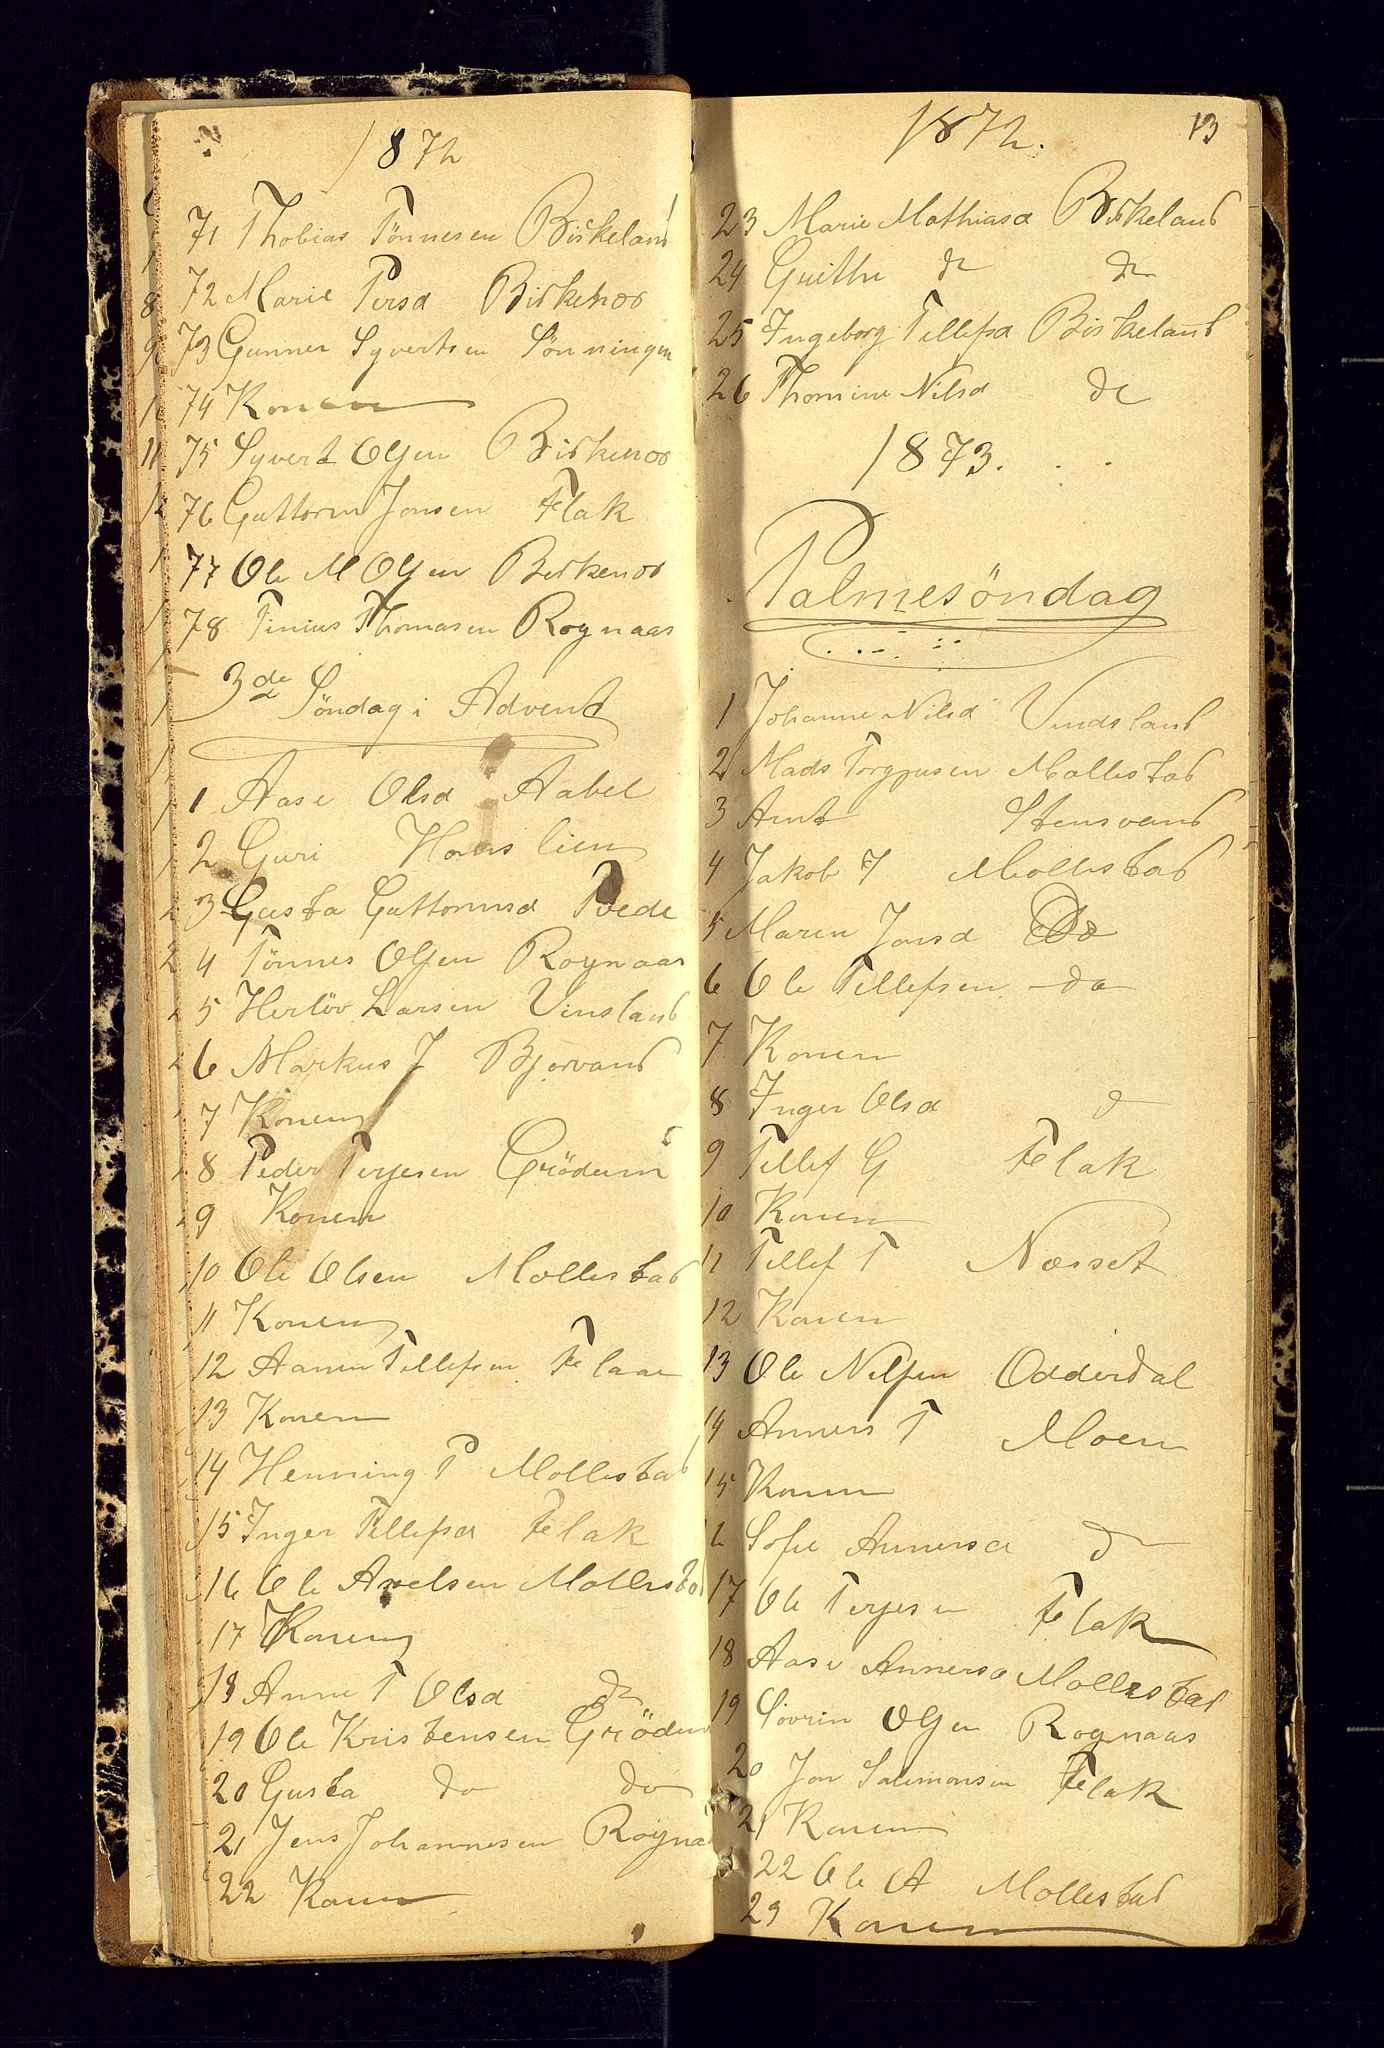 1872
71 Thobias Tönnesen Birkeland
72 Marie Persd Birkenes
73 Gunner Syvertsen Sönningen
74 Konen
75 Syvert Olsen Birkenes
76 Guttorm Jonsen Flak
77 Ole M Olsen Birkenes
78 Tinius Thomasen Rognaas
3de Söndag i Advent
1 Aase Olsd Aabel
2 Guri Hamslien
3 Gusta Guttormsd Tvede
4 Tönnes Olsen Rognaas
5 Herlöv Larsen Vinsland
6 Markus J Bjorvand
7 Konen
8 Peder Terjesen Grödum
9 Konen
10 Ole Olsen Mollestad
11 Konen
12 Aanen Tellefsen Flaa
13 Konen
14 Henning T Mollestad
15 Inger Tellefsd Flak
16 Ole Axelsen Mollestad
17 Konen
18 Anne T Olsd do
19 Ole Kristensen Grödum
20 Gusta do do
21 Jens Johannesen Rogna
22 Konen
1872.
13
23 Marie Mathiasd Birkeland
24 Guithe do do
25 Ingeborg Tellefsd Birkeland
26 Thomine Nilsd do
1873.
Palmesöndag
1 Johanne Nilsd Vindsland
2 Mads Torgjusen Mollestad
3 Arnt Stensvand
4 Jakob J Mollestad
5 Maren Jonsd Do
6 Ole Tellefsen do
7 Konen
8 Inger Olsd d
9 Tellef G Flak
10 Konen
11 Tellef T Næsset
12 Konen
13 Ole Nilsen Odderdal
14 Anners T Moen
15 Konen
16 Sofie Annersd d
17 Ole Terjesen Flak
18 Aase Annersd Mollestad
19 Sövrin Olsen Rognaas
20 Jon Salimonsen Flak
21 Konen
22 Ole A Mollestad
23 Konen